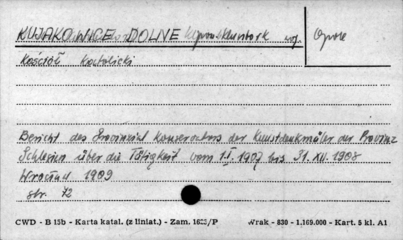 KUJAKOWICE DOLNE pow. Kluczbork woj. Opole
Kościół katolicki
Bericht des Provinzial Konservators der Kunstdenkmäler der Provinz
Schlesien über die Tätigkeit vom 1.I. 1907 bis 31. XII. 1908
Wrocław 1909
str. 72
CWD - B 15b - Karta katal. (z liniat.) - Zam. /P Wrak - 830 - 1,169.000 - Kart. 5 kl. A1